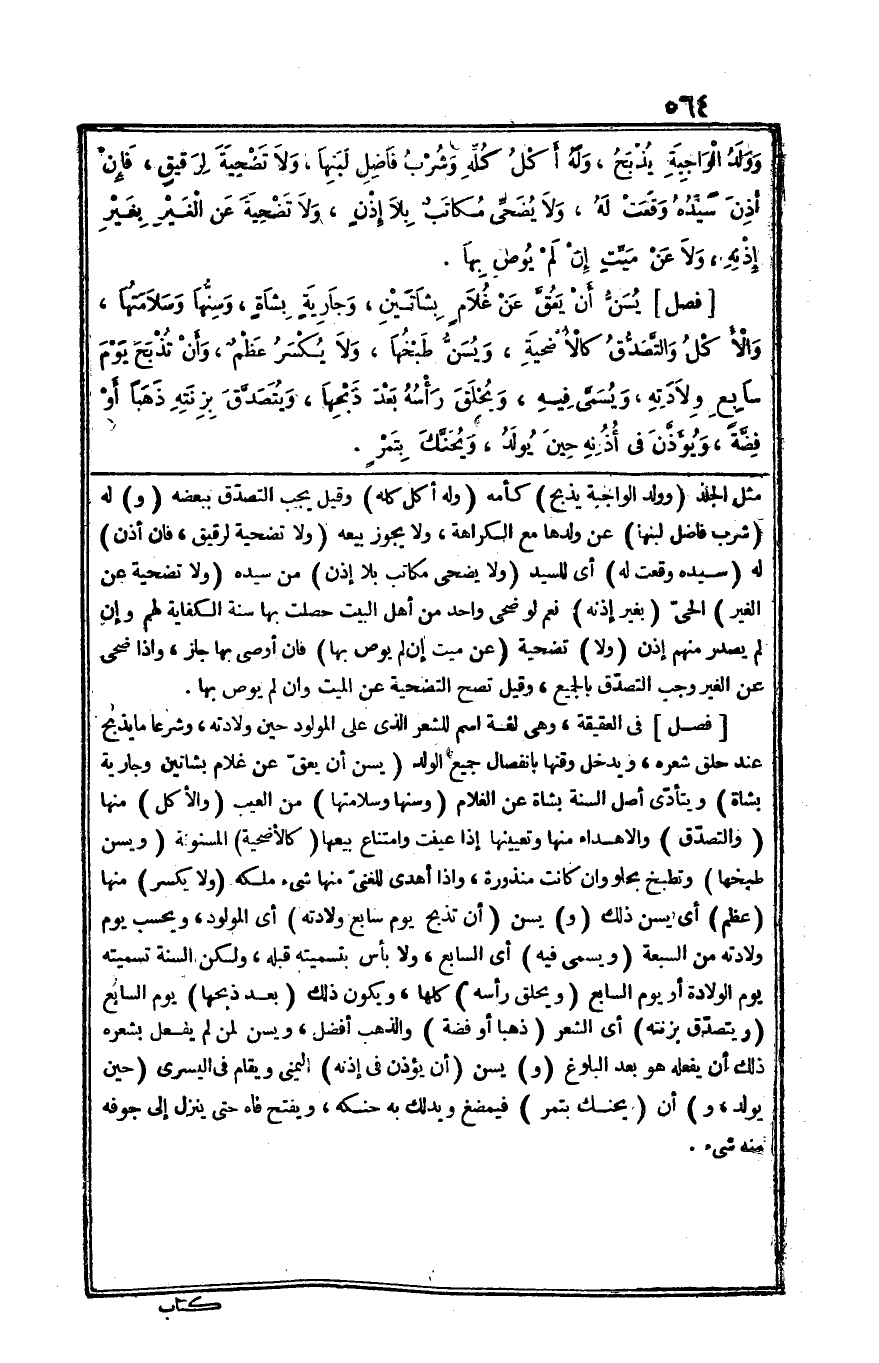 ٥٦٤
وَوَلَدُ الْوَاجِبَةِ يُذْبَحُ ، وَلَهُ أَكْلُ كُلِّهِ وَشُرْبُ فَاضِلِ لَبَنِهَا ، وَلَا تَضْحِيَةَ لِرَقِيقٍ ، فَإِنْ
أَذِنَ سَيِّدُهُ وَقَعَتْ لَهُ ، وَلَا يُضَحِّى مُكَاتَبٌ بِلَا إِذْنٍ ، وَلَا تَضْحِيَةَ عَنِ الْغَيْرِ بِغَيْرِ
إِذْنِهِ ، وَلَا عَنْ مَيِّتٍ إِنْ لَمْ يُوصِ بِهَا .
[ فصل ] يُسَنُّ أَنْ يَعُقَّ عَنْ غُلَامٍ بِشَاتَيْنِ ، وَجَارِيَةٍ بِشَاةٍ ، وَسِنُّهَا وَسَلَامَتُهَا ،
وَالْأَكْلُ وَالتَّصَدُّقُ كَالْأُضْحِيَةِ ، وَيُسَنُّ طَبْخُهَا ، وَلَا يُكْسَرُ عَظْمٌ ، وَأَنْ تُذْبَحَ يَوْمَ
سَابِعِ وِلَادَتِهِ ، وَيُسَمَّى فِيهِ ، وَيُحْلَقَ رَأْسُهُ بَعْدَ ذَبْحِهَا ، وَيُتَصَدَّقَ بِزِنَتِهِ ذَهَبًا أَوْ
فِضَّةً ، وَيُؤَذَّنَ فى أُذُنِهِ حِينَ يُولَدُ ، وَيُحَنَّكَ بِتَمْرٍ .
مثل الجلد ( وولد الواجبة يذبح ) كأمه ( وله أكل كله ) وقيل يجب التصدّق ببعضه ( و ) له
( شرب فاضل لبنها ) عن ولدها مع الكراهة ، ولا يجوز بيعه ( ولا تضحية لرقيق ، فان أذن )
له ( سيده وقعت له ) أى للسيد ( ولا يضحى مكاتب بلا إذن ) من سيده ( ولا تضحية عن
الغير ) الحىّ ( بغير إذنه ) نعم لو ضحى واحد من أهل البيت حصلت بها سنة الكفاية لهم وإن
لم يصدر منهم إذن ( ولا ) تضحية ( عن ميت إن لم يوص بها ) فان أوصى بها جاز ، واذا ضحى
عن الغير وجب التصدّق بالجميع ، وقيل تصح التضحية عن الميت وان لم يوص بها .
[ فصل ] فى العقيقة ، وهى لغة اسم للشعر الذى على المولود حين ولادته ، وشرعا مايذبح
عند حلق شعره ، ويدخل وقتها بانفصال جميع الولد ( يسن أن يعقّ عن غلام بشاتين وجارية
بشاة ) ويتأدّى أصل السنة بشاة عن الغلام ( وسنها وسلامتها ) من العيب ( والأكل ) منها
( والتصدّق ) والاهداء منها وتعينها إذا عينت وامتناع بيعها ( كالأضحية ) المسنونة ( ويسن
طبخها ) وتطبخ بحلو وان كانت منذورة ، واذا أهدى للغنىّ منها شىء ملكه ( ولا يكسر ) منها
( عظم ) أى يسن ذلك ( و ) يسن ( أن تذبح يوم سابع ولادته ) أى المولود ، ويحسب يوم
ولادته من السبعة ( ويسمى فيه ) أى السابع ، ولا بأس بتسميته قبله ، ولكن السنة تسميته
يوم الولادة أو يوم السابع ( ويحلق رأسه ) كلها ، ويكون ذلك ( بعد ذبحها ) يوم السابع
( ويتصدّق بزنته ) أى الشعر ( ذهبا أو فضة ) والذهب أفضل ، ويسن لمن لم يفعل بشعره
ذلك أن يفعله هو بعد البلوغ ( و ) يسن ( أن يؤذن فى إذنه ) اليمنى ويقام فى اليسرى ( حين
يولد ، و ) أن ( يحنك بتمر ) فيمضغ ويدلك به حنكه ، ويفتح فاه حتى ينزل إلى جوفه
منه شىء .
كتاب